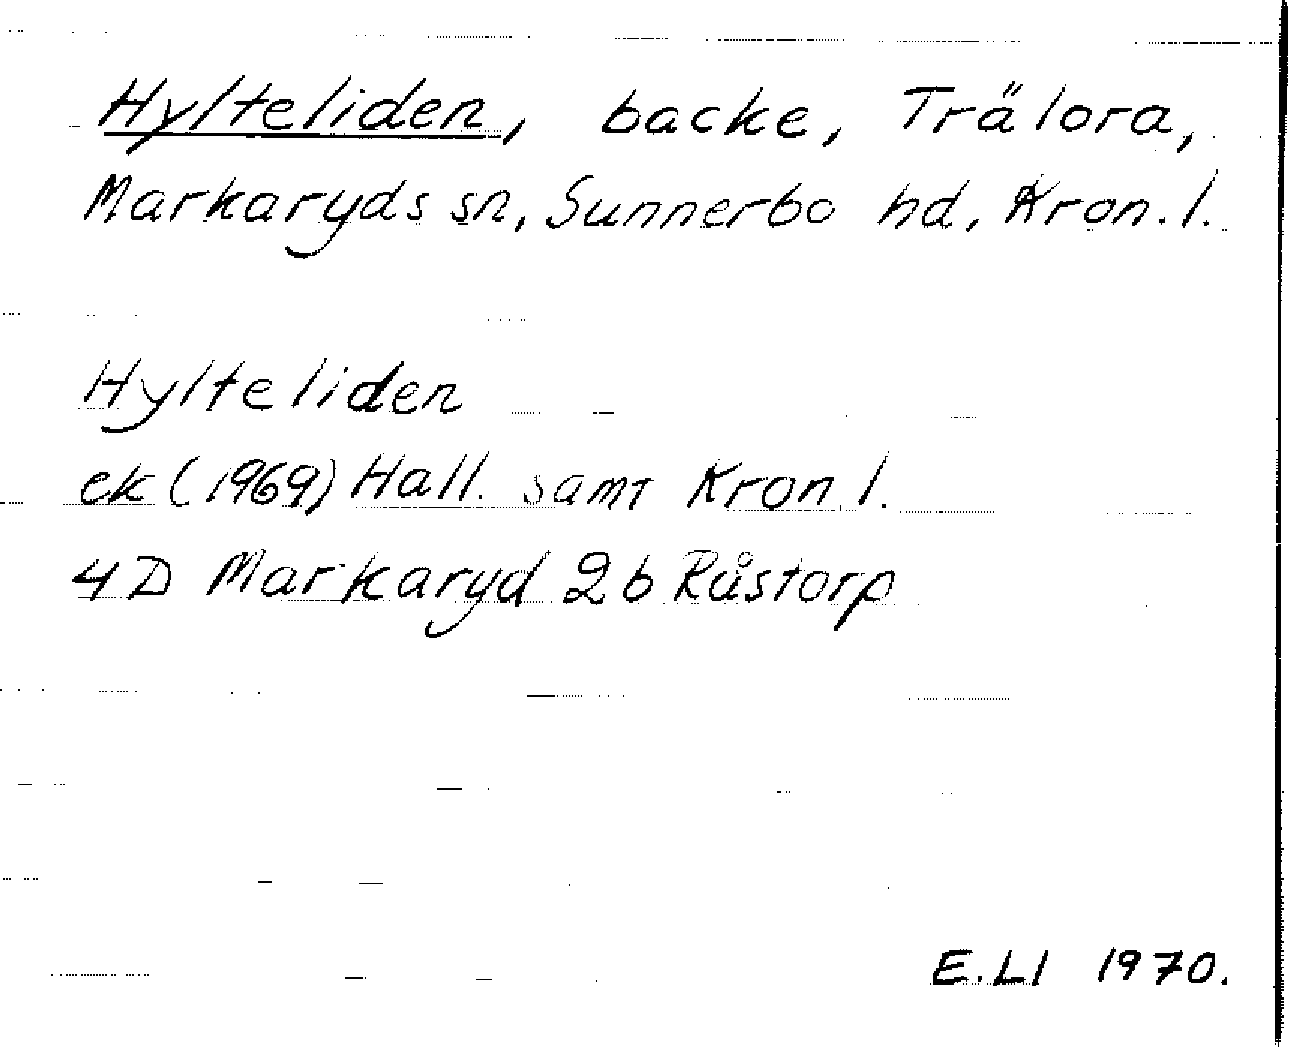 Hylteliden, backe, Trälora,
Markaryds sn, Sunnerbo hd, Kron. l.
Hylteliden
ek (1969) Hall. samt Kron. l.
4D Markaryd 2b Råstorp
E.Ll 1970.